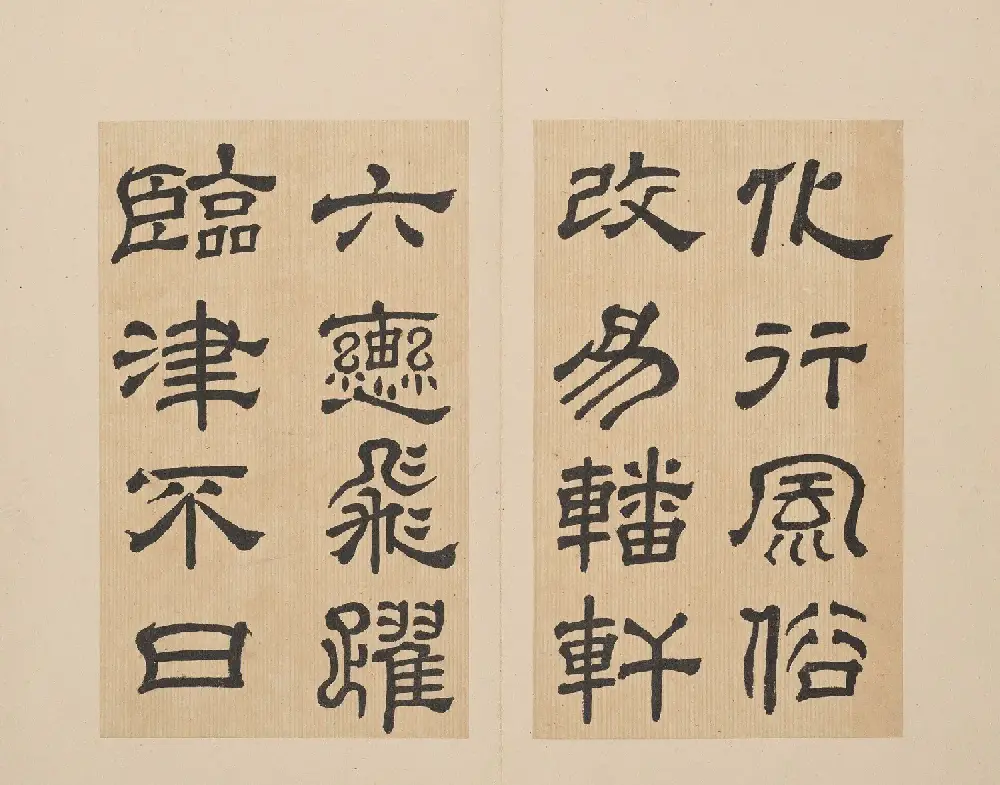 化行風俗
改易轓軒
六轡飛躍
臨津不日